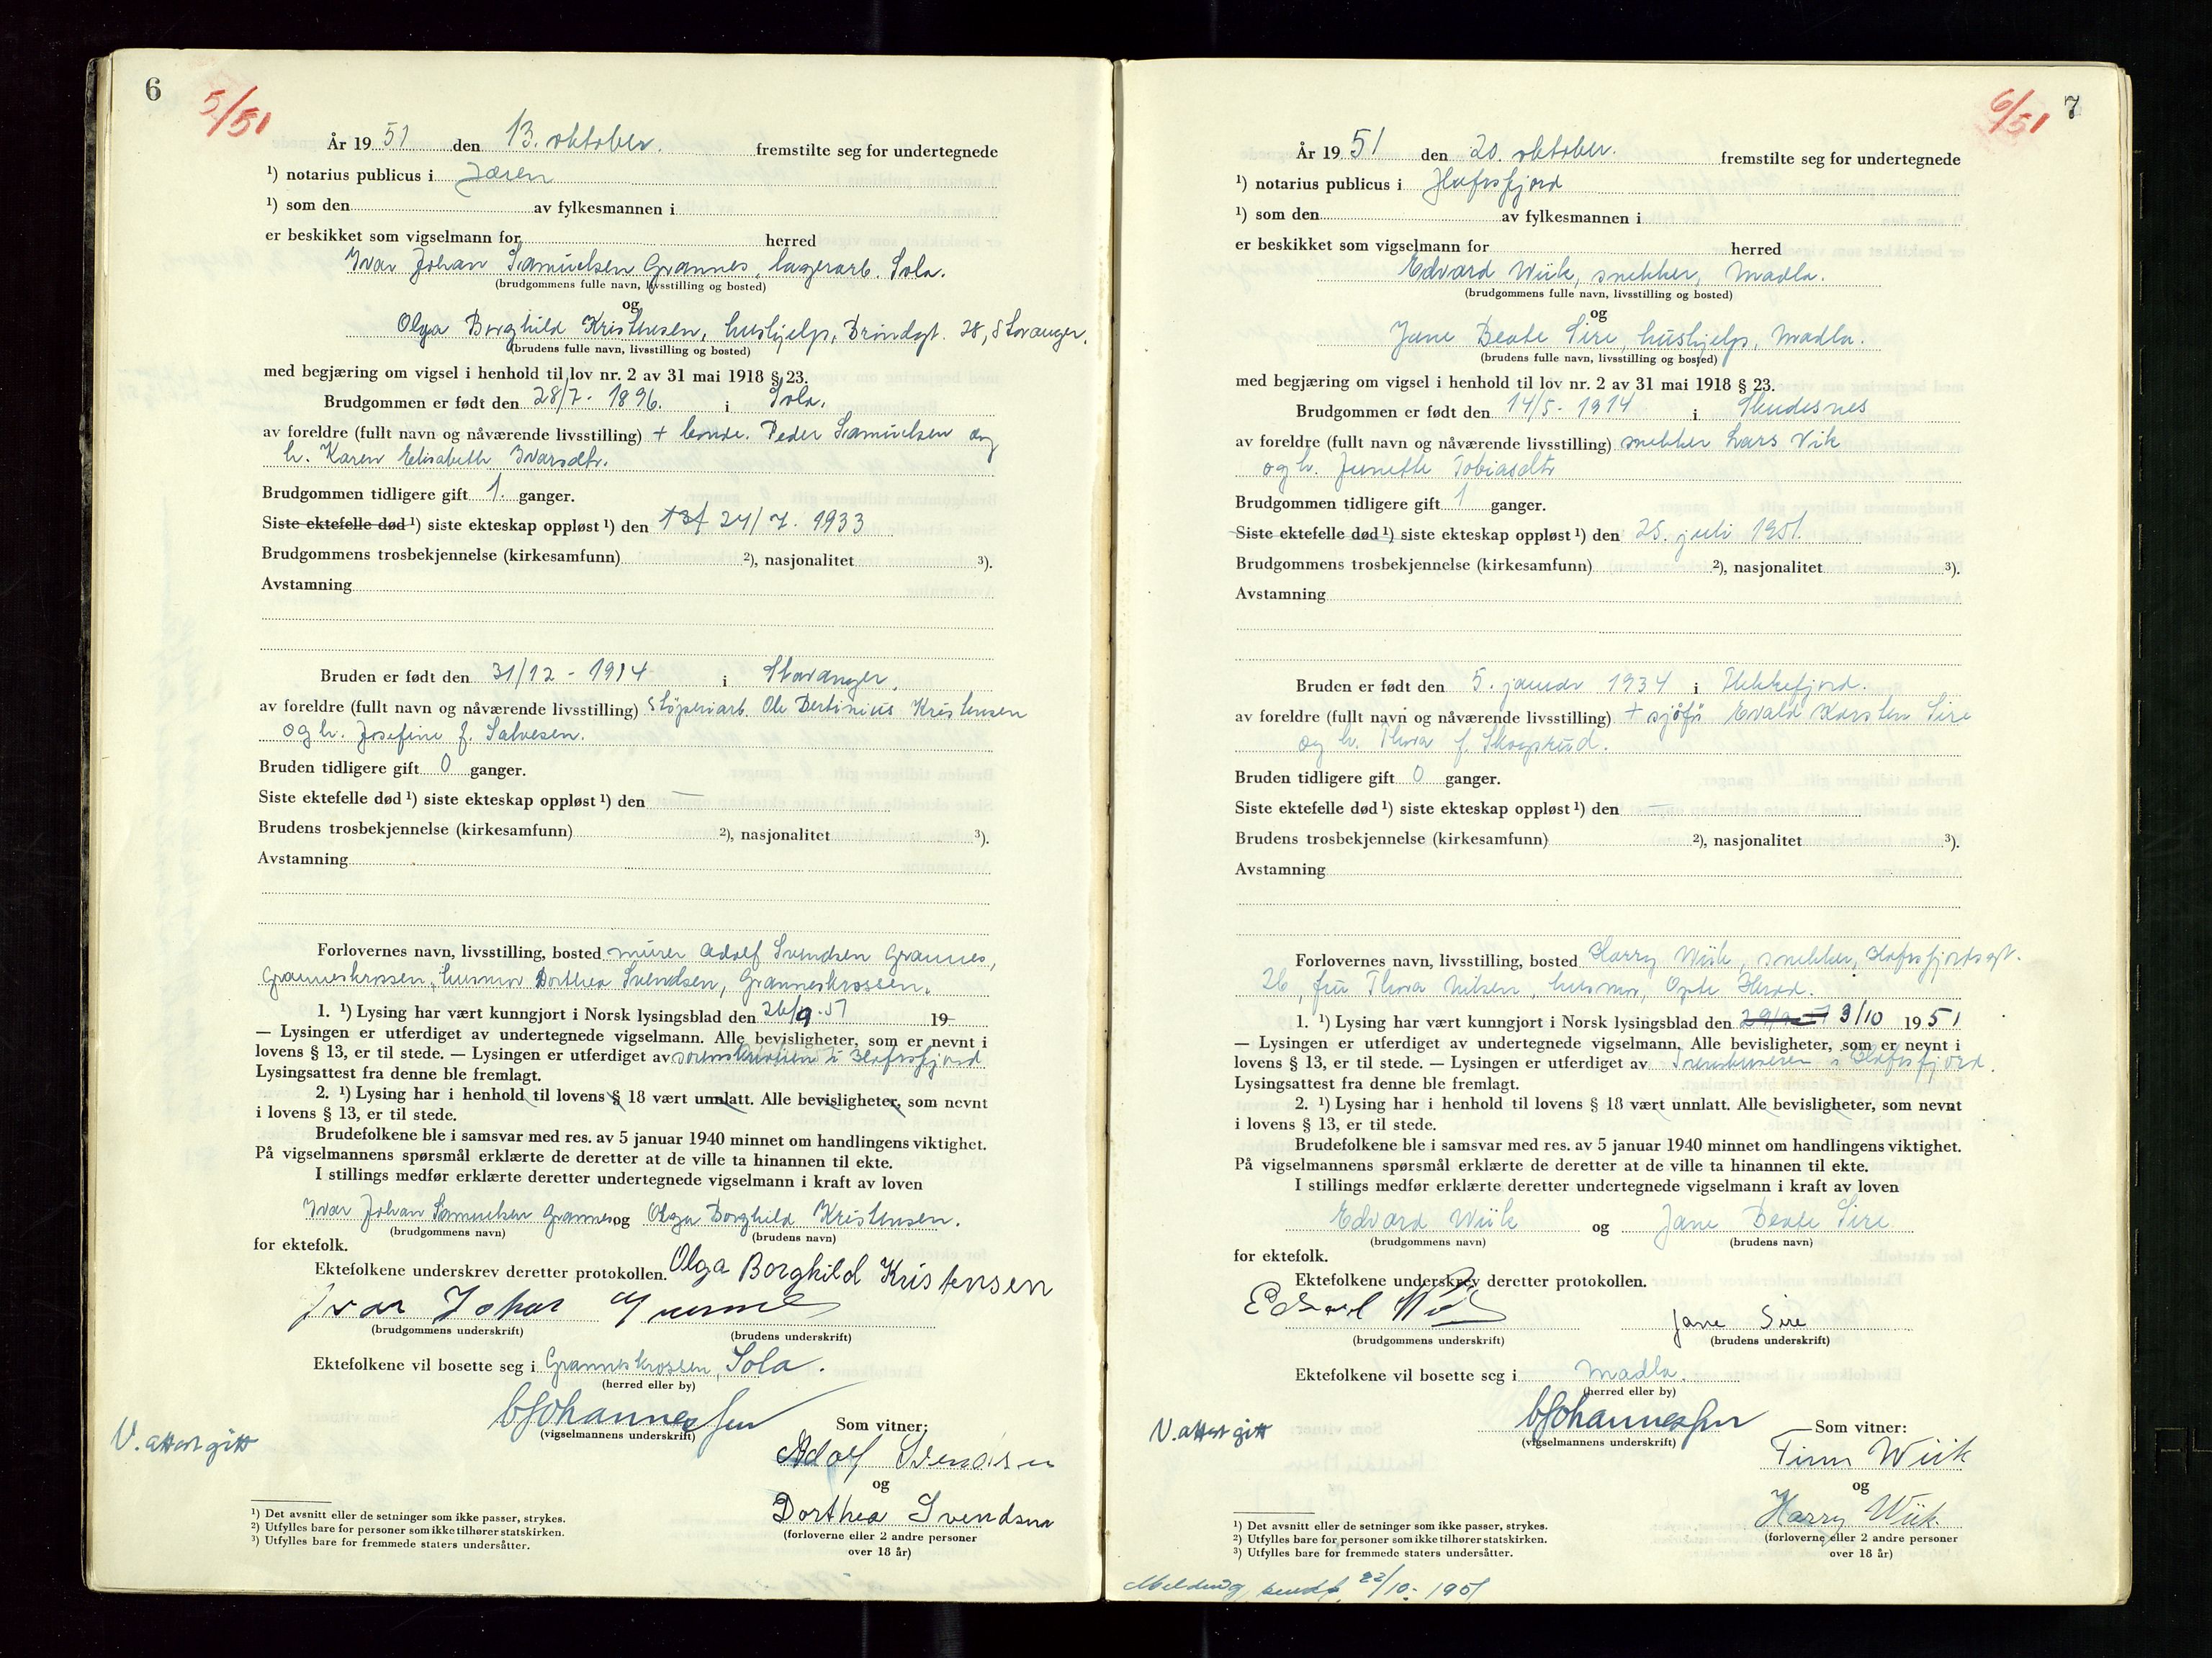 6
5/51
År 19 51 den 13. oktober. fremstilte seg for undertegnede
¹) notarius publicus i Jæren
¹) som den av fylkesmannen i
er beskikket som vigselmann for herred
Ivar Johan Samuelsen Grannes, lagerarb. Sola.
(brudgommens fulle navn, livsstilling og bosted)
og
Olga Borghild Kristensen, hushjelp, Brindgt. 28, Stavanger.
(brudens fulle navn, livsstilling og bosted)
med begjæring om vigsel i henhold til lov nr. 2 av 31 mai 1918 § 23.
Brudgommen er født den 28/7. 1896. i Sola.
av foreldre (fullt navn og nåværende livsstilling) + bonde. Peder Samuelsen og
h. Karen Elisabeth Ivarsdtr.
Brudgommen tidligere gift 1. ganger.
Siste ektefelle død ¹) siste ekteskap oppløst ¹) den 24/7. 1933
Brudgommens trosbekjennelse (kirkesamfunn) ²), nasjonalitet ³).
Avstamning
Bruden er født den 31/12 - 1914 i Stavanger.
av foreldre (fullt navn og nåværende livsstilling) Støperiarb. Ole Bertinius Kristensen
og h. Josefine f. Salvesen.
Bruden tidligere gift 0 ganger.
Siste ektefelle død ¹) siste ekteskap oppløst ¹) den —
Brudens trosbekjennelse (kirkesamfunn) ²), nasjonalitet ³).
Avstamning
Forlovernes navn, livsstilling, bosted murer Adolf Svendsen Grannes,
Granneskrossen, husmor Dorthea Svendsen, Granneskrossen.
1. ¹) Lysing har vært kunngjort i Norsk lysingsblad den 26/9.51 19
— Lysingen er utferdiget av undertegnede vigselmann. Alle bevisligheter, som er nevnt i
lovens § 13, er til stede. — Lysingen er utferdiget av sorenskriveren i Hafrsfjord
Lysingsattest fra denne ble fremlagt.
2. ¹) Lysing har i henhold til lovens § 18 vært unnlatt. Alle bevisligheter, som nevnt
i lovens § 13, er til stede.
Brudefolkene ble i samsvar med res. av 5 januar 1940 minnet om handlingens viktighet.
På vigselmannens spørsmål erklærte de deretter at de ville ta hinannen til ekte.
I stillings medfør erklærte deretter undertegnede vigselmann i kraft av loven
Ivar Johan Samuelsen Grannes og Olga Borghild Kristensen.
(brudgommens navn) (brudens navn)
for ektefolk.
Ektefolkene underskrev deretter protokollen. Olga Borghild Kristensen
Ivar Johan Grannes
(brudgommens underskrift) (brudens underskrift)
Ektefolkene vil bosette seg i Granneskrossen, Sola.
(herred eller by)
Johannessen
(vigselmannens underskrift)
V. attest gitt
Som vitner:
Adolf Svendsen
og
Dorthea Svendsen
(forloverne eller 2 andre personer
over 18 år)
¹) Det avsnitt eller de setninger som ikke passer, strykes.
²) Utfylles bare for personer som ikke tilhører statskirken.
³) Utfylles bare for fremmede staters undersåtter.
6/51
7
År 19 51 den 20. oktober. fremstilte seg for undertegnede
¹) notarius publicus i Hafrsfjord
¹) som den av fylkesmannen i
er beskikket som vigselmann for herred
Edvard Wiik, snekker, Madla.
(brudgommens fulle navn, livsstilling og bosted)
og
Jane Beate Sire, hushjelp, Madla.
(brudens fulle navn, livsstilling og bosted)
med begjæring om vigsel i henhold til lov nr. 2 av 31 mai 1918 § 23.
Brudgommen er født den 14/5 - 1914 i Skudesnes
av foreldre (fullt navn og nåværende livsstilling) snekker Lars Vik
og h. Jenette Tobiasdtr
Brudgommen tidligere gift 1 ganger.
Siste ektefelle død ¹) siste ekteskap oppløst ¹) den 25. juli 1951.
Brudgommens trosbekjennelse (kirkesamfunn) ²), nasjonalitet ³).
Avstamning
Bruden er født den 5. januar 1934 i Flekkefjord.
av foreldre (fullt navn og nåværende livsstilling) + sjøfø Evald Karsten Sire
og h. Thora f. Skogsrud.
Bruden tidligere gift 0 ganger.
Siste ektefelle død ¹) siste ekteskap oppløst ¹) den —
Brudens trosbekjennelse (kirkesamfunn) ²), nasjonalitet ³).
Avstamning
Forlovernes navn, livsstilling, bosted Harry Wiik, snekker, Hafrsfjordsgt.
26, fru Thora Nilsen, husmor,
1. ¹) Lysing har vært kunngjort i Norsk lysingsblad den 3/10 19 51
— Lysingen er utferdiget av undertegnede vigselmann. Alle bevisligheter, som er nevnt i
lovens § 13, er til stede. — Lysingen er utferdiget av Sorenskriveren i Hafrsfjord.
Lysingsattest fra denne ble fremlagt.
2. ¹) Lysing har i henhold til lovens § 18 vært unnlatt. Alle bevisligheter, som nevnt
i lovens § 13, er til stede.
Brudefolkene ble i samsvar med res. av 5 januar 1940 minnet om handlingens viktighet.
På vigselmannens spørsmål erklærte de deretter at de ville ta hinannen til ekte.
I stillings medfør erklærte deretter undertegnede vigselmann i kraft av loven
Edvard Wiik og Jane Beate Sire
(brudgommens navn) (brudens navn)
for ektefolk.
Ektefolkene underskrev deretter protokollen.
Edvard Wiik Jane Sire
(brudgommens underskrift) (brudens underskrift)
Ektefolkene vil bosette seg i Madla.
(herred eller by)
Johannessen
(vigselmannens underskrift)
V. attest gitt
Som vitner:
Finn Wiik
og
Harry Wiik.
(forloverne eller 2 andre personer
over 18 år)
¹) Det avsnitt eller de setninger som ikke passer, strykes.
²) Utfylles bare for personer som ikke tilhører statskirken.
³) Utfylles bare for fremmede staters undersåtter.
Melding sendt 22/10. 1951